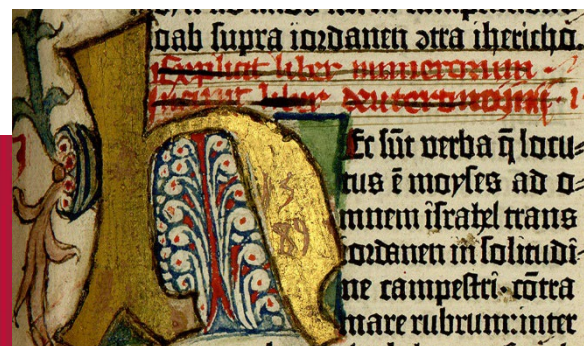 oab supra iordanen ↄtra iherichο.
Explicit liber numerorum.
Incipit liber deuteronomij. i
HEc sūt verba q̄ locu=
tus ē moyses ad o=
mnem israhel trans
iordanen in solitudi=
ne campestri. cōtra
mare rubrum: inter
15
89